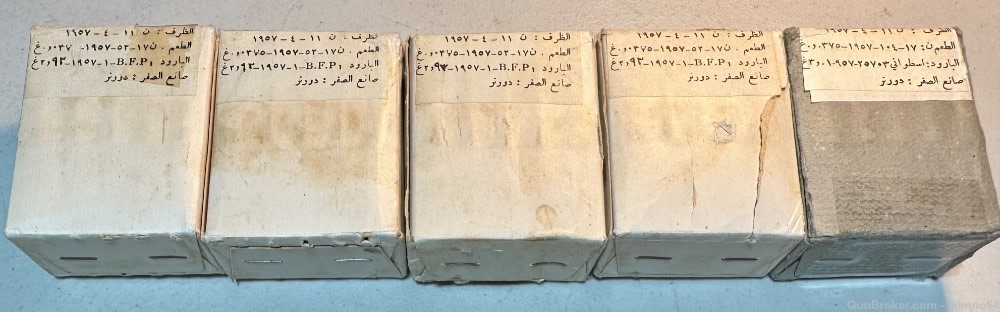 الظرف : ن ١١-٤-١٩٥٧
الطعم . ن١٧-٥٢-١٩٥٧
البارود B.F.P١-١-١٩٥٧-٢٫٩٣غ
الظرف : ن ١١-٤-١٩٥٧
الطعم . ن١٧-٥٢-١٩٥٧-٠٫٠٣٧٥غ
البارود B.F.P١-١-١٩٥٧-٢٫٩٣غ
صانع الصفر : دورنر
الظرف : ن ١١-٤-١٩٥٧
الطعم . ن١٧-٥٢-١٩٥٧-٠٫٠٣٧٥غ
البارود B.F.P١-١-١٩٥٧-٢٫٩٣غ
صانع الصفر : دورنر
الظرف : ن ١١-٤-١٩٥٧
الطعم . ن١٧-٥٢-١٩٥٧-٠٫٠٣٧٥غ
البارود B.F.P١-١-١٩٥٧-٢٫٩٣غ
صانع الصفر : دورنر
الظرف : ن ١١-٤-١٩٥٧
الطعم ن: ١٧-١٠٤-١٩٥٧-٠٫٠٣٧٥
البارود: اسطواني
صانع الصفر : دورنر
GunBroker.com